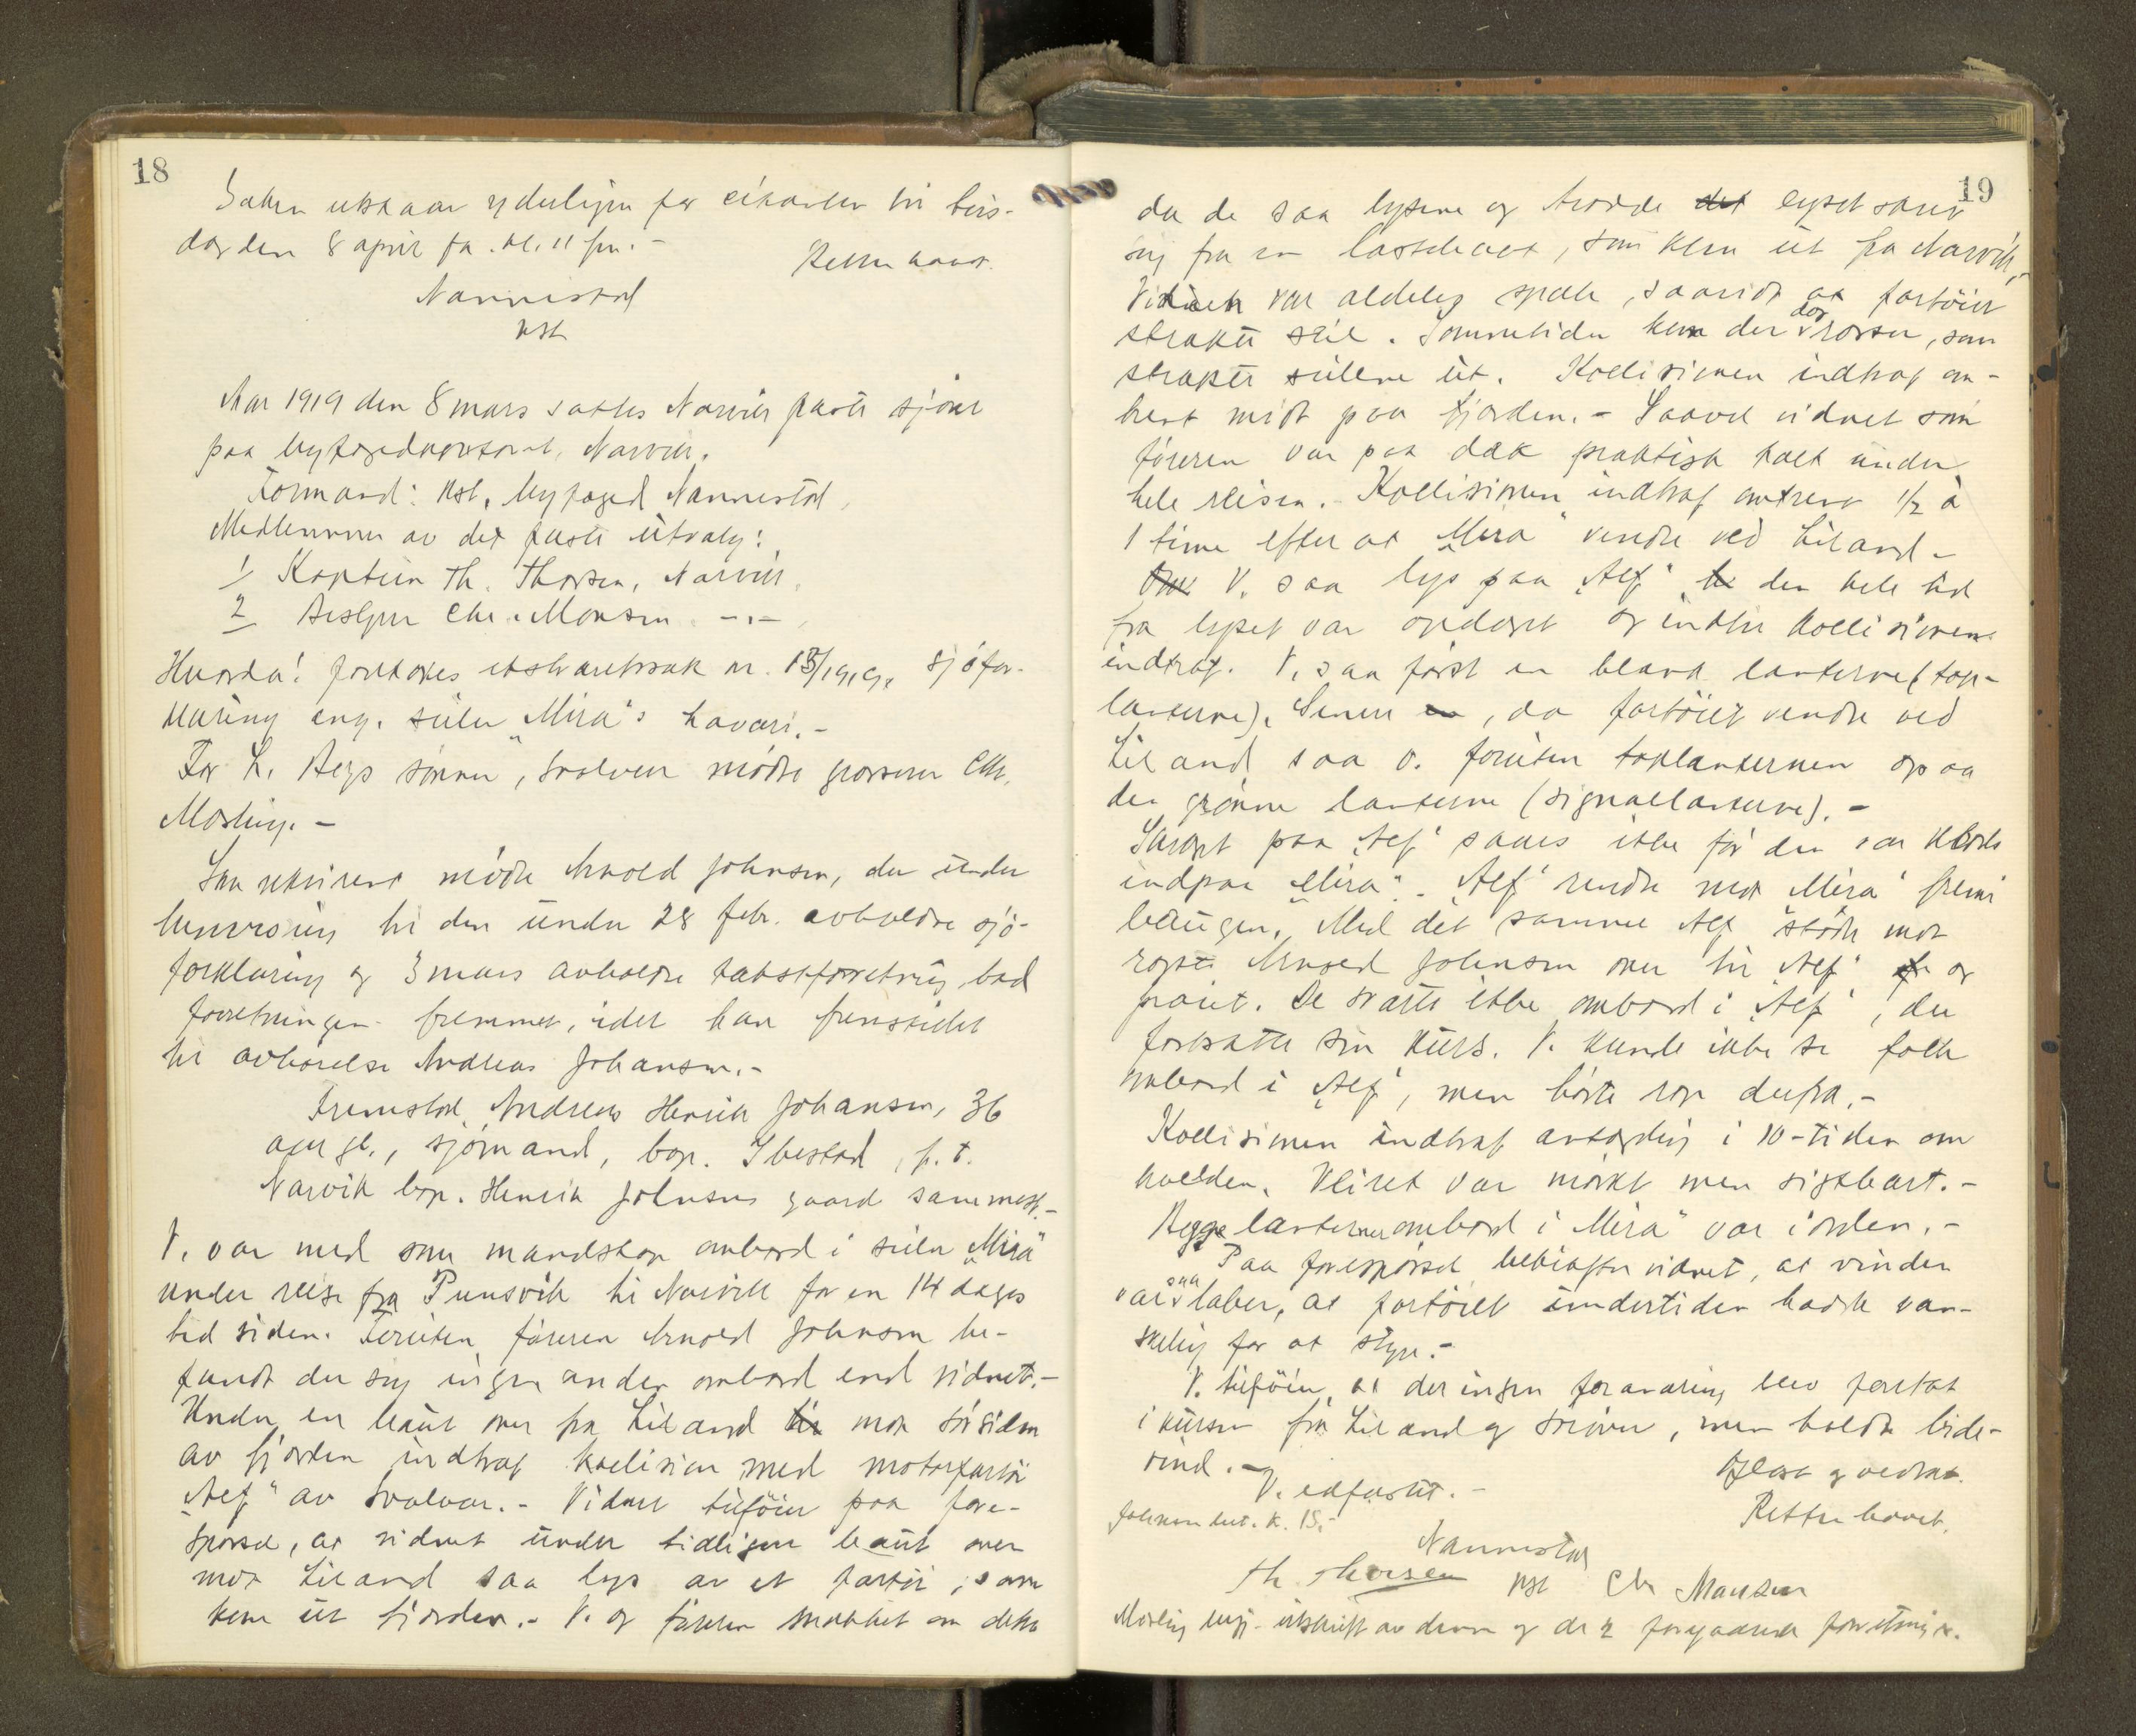 18
Saken utstaar yderligere for eikanten til tirs-
dag den 8 april fa. kl. 11 fm. -
Retten hævet.
Nannestad
kst
Aar 1919 den 8 mars sattes Narvik faste sjöret
paa byfogedkontoret, Narvik.
Formand: Kst. byfoged Nannestad,
Medlemmer av det faste utvalg:
1/ Kaptein Th. Thorsen, Narvik.
2 Chr. Monsen -.-
Hvorda! foretokes ekstraretssak nr. 13/1919, sjöfor-
klaring ang. seiler „Mira"s havari.-
For L. Bergs sønner, Svolvær mødte grosserer Chr.
Mosling. -
Som rekvirent mødte Arnold Johnsen, der under
henvisning til den under 28 febr. avholdte sjö-
forklaring og 3 mars avholdte takstforretning bad
forretningen fremmet, idet han fremstillet
til avhörelse Andreas Johansen.-
Fremstod Andreas Henrik Johansen, 36
aar gl., sjömand, bop. Ibestad, p. t.
Narvik bop. Henrik Johnsens gaard sammest.-
V. var med som mandskap ombord i seiler „Mira"
under reise fra Punsvik til Narvik for en 14 dages
tid siden. Foruten föreren Arnold Johnsen be-
fandt der sig ingen anden ombord end vidnet.-
Under en baut over fra Liland til mot sörsiden
av fjorden indtraf kollision med motorfartöi
„Alf" av Svolvær.- Vidnet tilföier paa fore-
spørsel, at vidnet under tidligere baut over
mot Liland saa lys av et fartöi, som
kom ut fjorden.- V. og föreren snakket om dette
19
da de saa lysene og trodde det lyset var
sig fra en lastebaat, som kom ut fra Narvik.-
Vinden var aldeles spak, saavidt at fartöiet
strakte seil. Sommetider kom der dog rosser, som
strakte seilene ut. Kollisionen indtraf om-
trent midt paa fjorden.- Saavel vidnet som
föreren var paa dæk praktisk talt under
hele reisen.- Kollisionen indtraf omtrent 1/2 à
1 time efter at „Mira" vendte ved Liland.-
V. saa lys paa „Alf" den hele tid
fra lyset var opdaget og indtil kollisionen
indtraf. V. saa först en blank lanterne (top-
lanterne). Senere en, da fartöiet vendte ved
Liland saa v. foruten toplanternen ogsaa
den grönne lanterne (signallanterne).-
Skroget paa „Alf" saaes ikke før den var kloss
indpaa „Mira".- „Alf" rendte mot „Mira" fremi
baugen. Med det samme „Alf" stödte mot
ropte Arnold Johnsen over til „Alf" og
praiet. De svarte ikke ombord i „Alf", der
fortsatte sin kurs. V. kunde ikke se folk
ombord i „Alf", men hörte rop derfra.-
Kollisionen indtraf antagelig i 10-tiden om
kvelden. Veiret var mörkt men sigtbart.-
Begge lanterner ombord i „Mira" var i orden.-
Paa forespørsel bekræfter vidnet, at vinden
var saa laber, at fartöiet undertiden hadde van-
skelig for at styre.-
V. tilföier, at der ingen forandring blev foretat
i kursen fra Liland og sörover, men holdt bide-
vind.-
Oplæst og vedtat.
V. edfæstet.-
Johansen bet. kr. 15.-
Retten hævet.
Nannestad
Th. Thorsen kst Chr Monsen
Mosling beg. utskrift av denne og de 2 foregaaende forretninger.